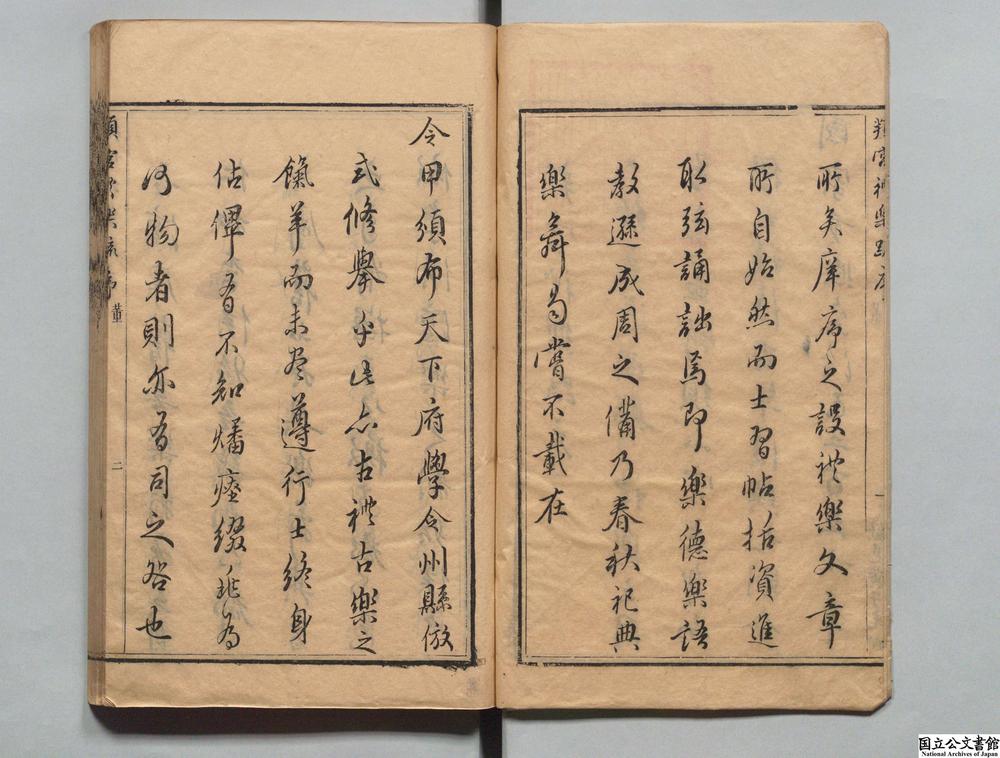 所矣庠序之設禮樂文章
所自始然而士習帖括資進
取弦誦詘焉即樂德樂語
教遜成周之備乃春秋祀典
樂舞曷嘗不載在
令甲須布天下府學令州縣倣
式修舉乎此亦古禮古樂之
餼羊而未盡遵行士終身
佔俾有不知燔瘞綴兆為
何物者則亦有司之咎也
頖宮禮樂疏序
董
二
国立公文書館
National Archives of Japan